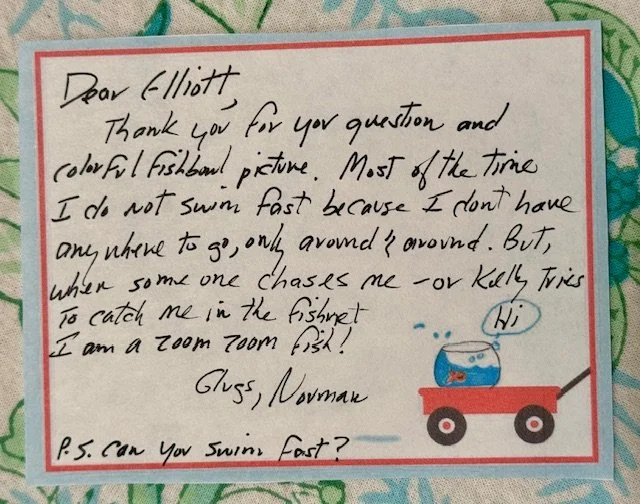 Dear Elliott,
Thank you for your question and
colorful fishbowl picture. Most of the time
I do not swim fast because I dont have
anywhere to go, only around & around. But,
when some one chases me - or Kelly tries
to catch me in the fishnet
I am a zoom zoom fish!
Hi
Glugs, Norman
P.S. Can you swim fast?